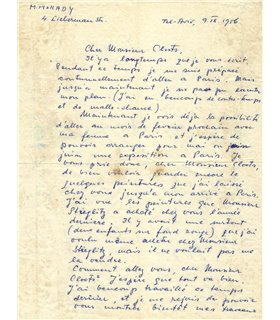 M. MOKADY
4 Lieberman Str. Tel-Aviv, 9.IX.1956
Cher Monsieur Cloots,
Il y a longtemps que je vous écrit.
Pendant ce temps je me suis préparé
continuellement d'aller à Paris. Mais
jusqu'à maintenant je n'ai pu exécuter
mon plan. (J'ai eu beaucoup de contre-temps
et de malle-chance)
Maintenant je vois déjà la possibilité
d'aller au mois de février prochain avec
ma femme à Paris et j'espère de
pouvoir arranger pour mai ou
juin une exposition à Paris. Je
vous prie donc, cher Monsieur Cloots,
de bien vouloir garder encore les
quelques peintures que j'ai laissé
chez vous jusqu'à mon arrivé à Paris.
J'ai vue les peintures que Monsieur
Stieglitz a acheté chez vous l'année
dernière. Il y avait une surtout
(deux enfants sur fond rouge) que j'ai
voulu même acheté chez Monsieur
Stieglitz, mais il ne voulait pas me
la vendre.
Comment allez vous, cher Monsieur
Cloots? J'espère que tout va bien.
J'ai beaucoup travaillé ce temps
dernier, et je me réjouis de pouvoir
vous montrer bientôt mes travaux